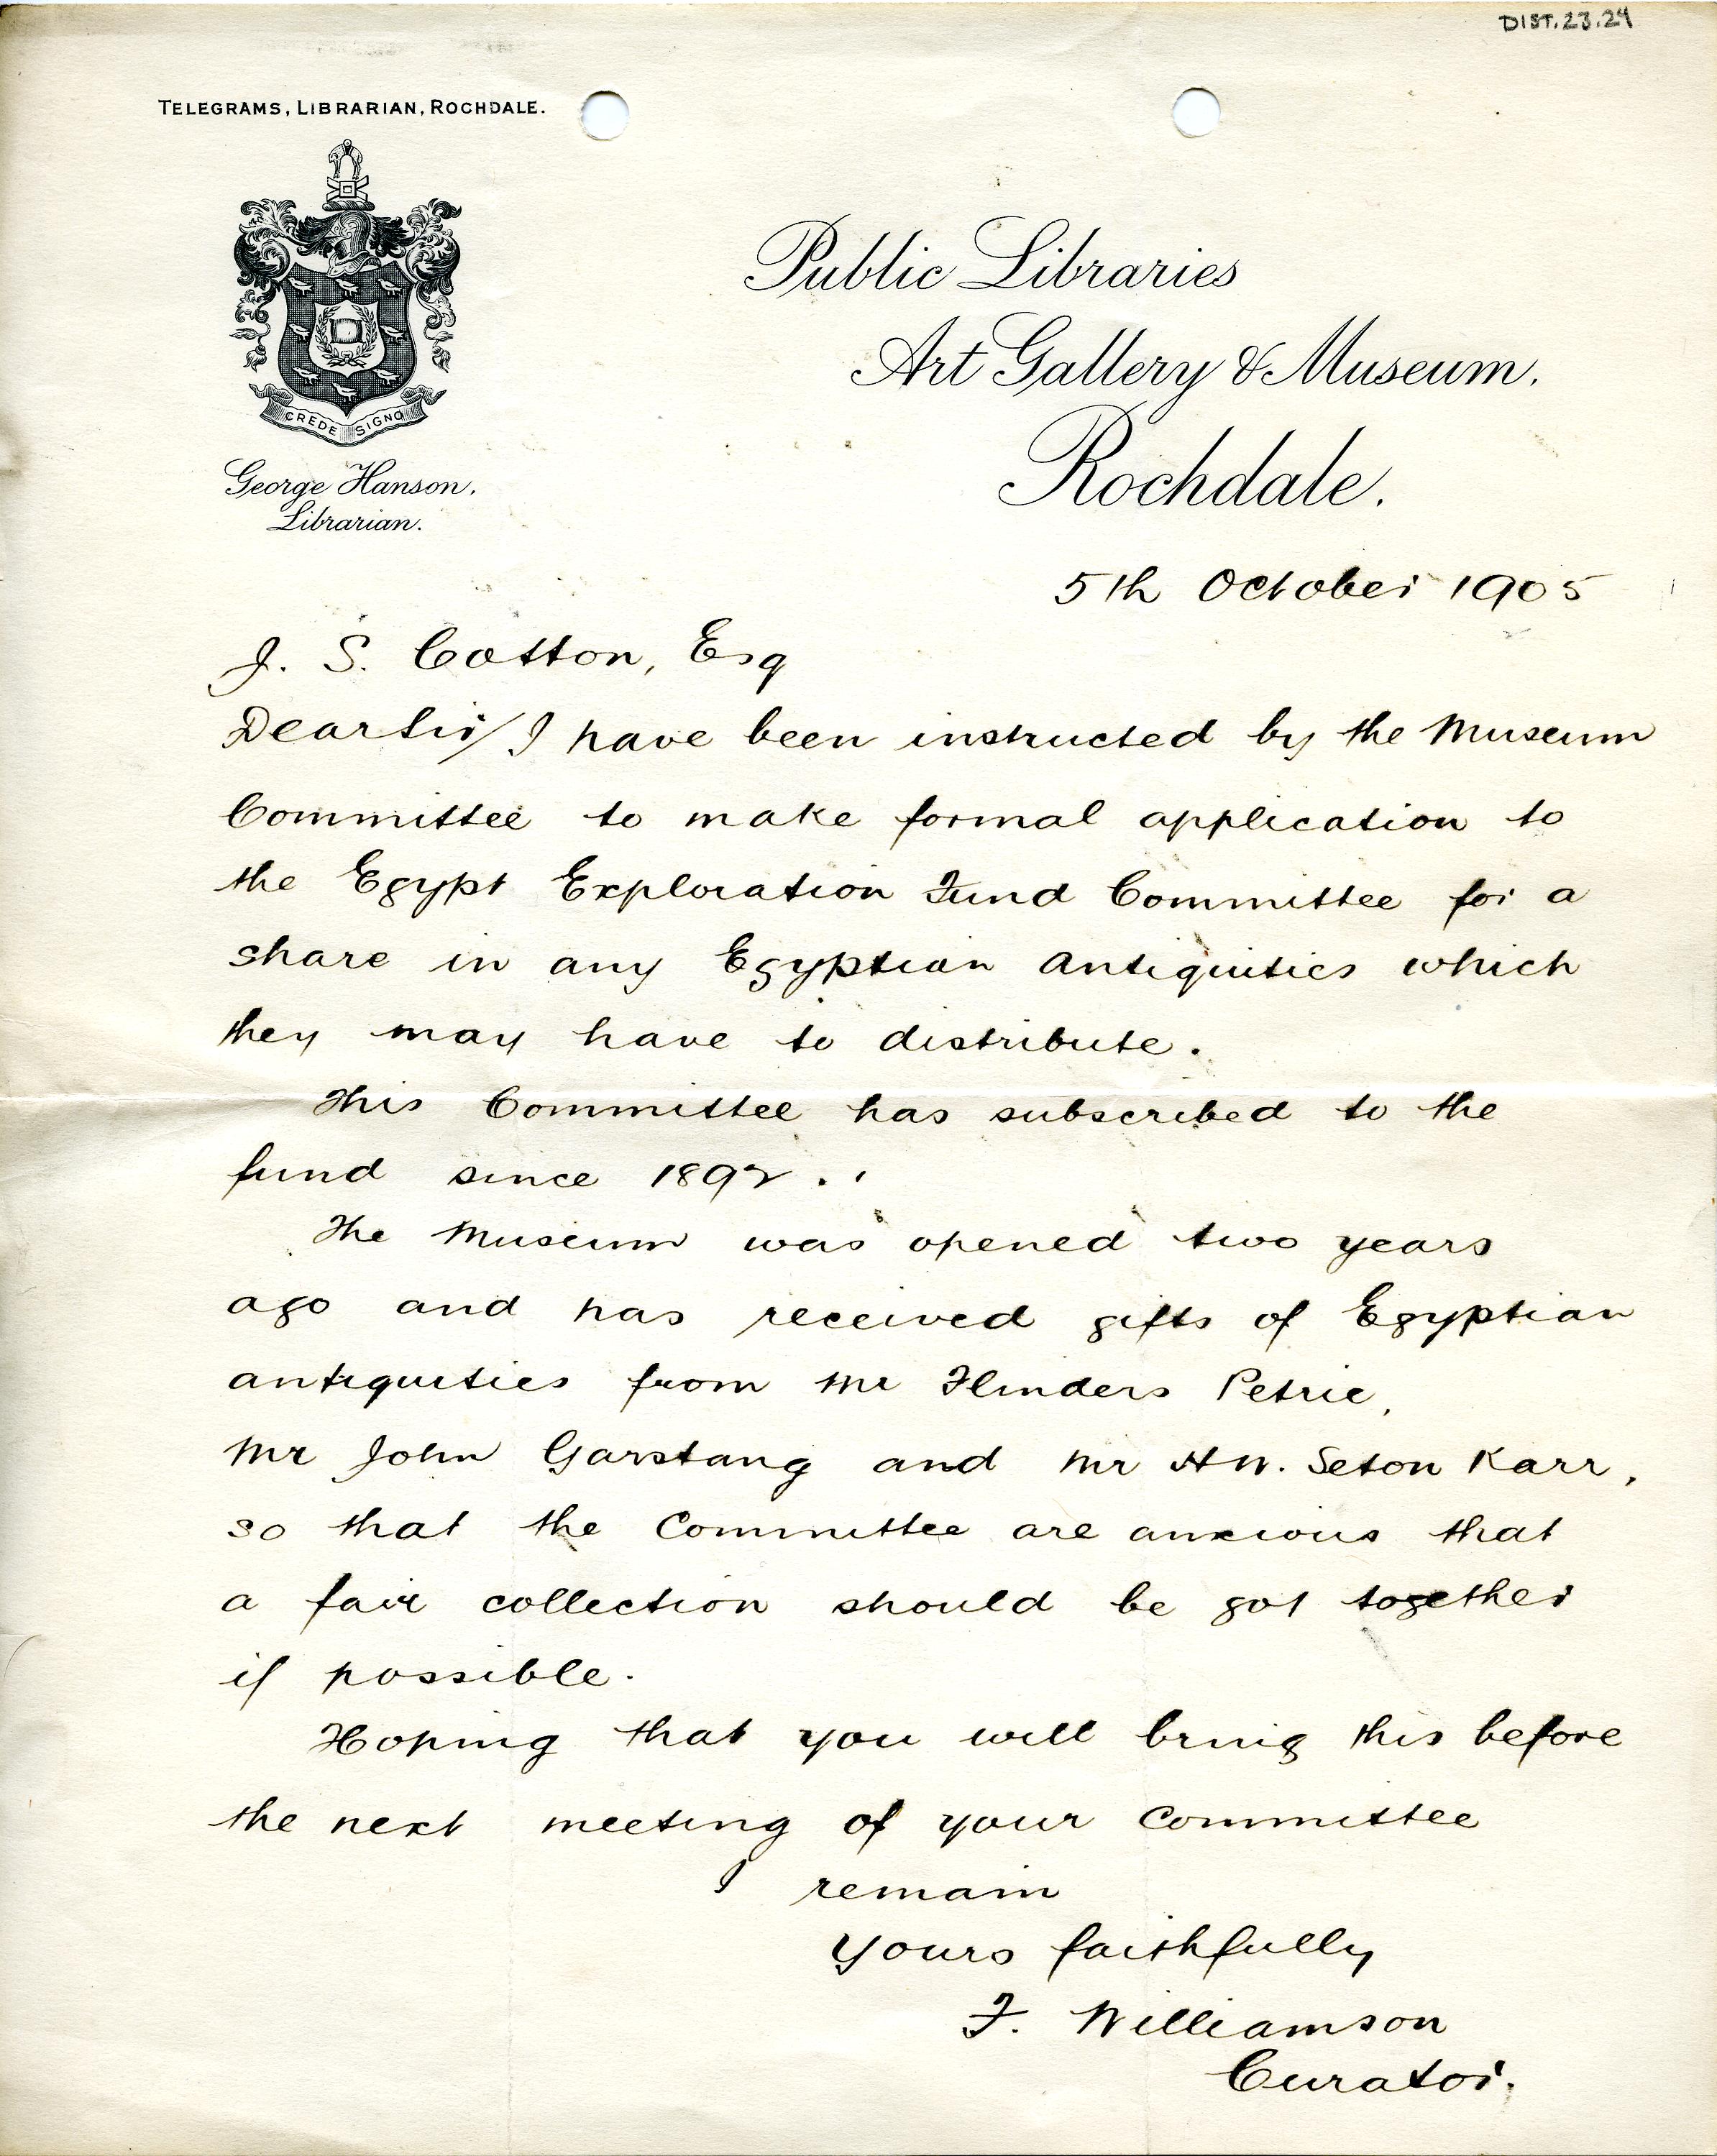 DIST.23.24
TELEGRAMS, LIBRARIAN, ROCHDALE.
CREDE SIGNO
George Hanson.
Librarian.
Public Libraries
Art Gallery & Museum.
Rochdale.
5th October 1905
J. S. Cotton, Esq
Dear Sir/ I have been instructed by the Museum
Committee to make formal application to
the Egypt Exploration Fund Committee for a
share in any Egyptian antiquities which
they may have to distribute.
This Committee has subscribed to the
fund since 1892.
The Museum was opened two years
ago and has received gifts of Egyptian
antiquities from Mr Flinders Petrie,
Mr John Garstang and Mr H W. Seton Karr,
so that the Committee are anxious that
a fair collection should be got together
if possible.
Hoping that you will bring this before
the next meeting of your Committee
I remain
Yours faithfully
F. Williamson
Curator.